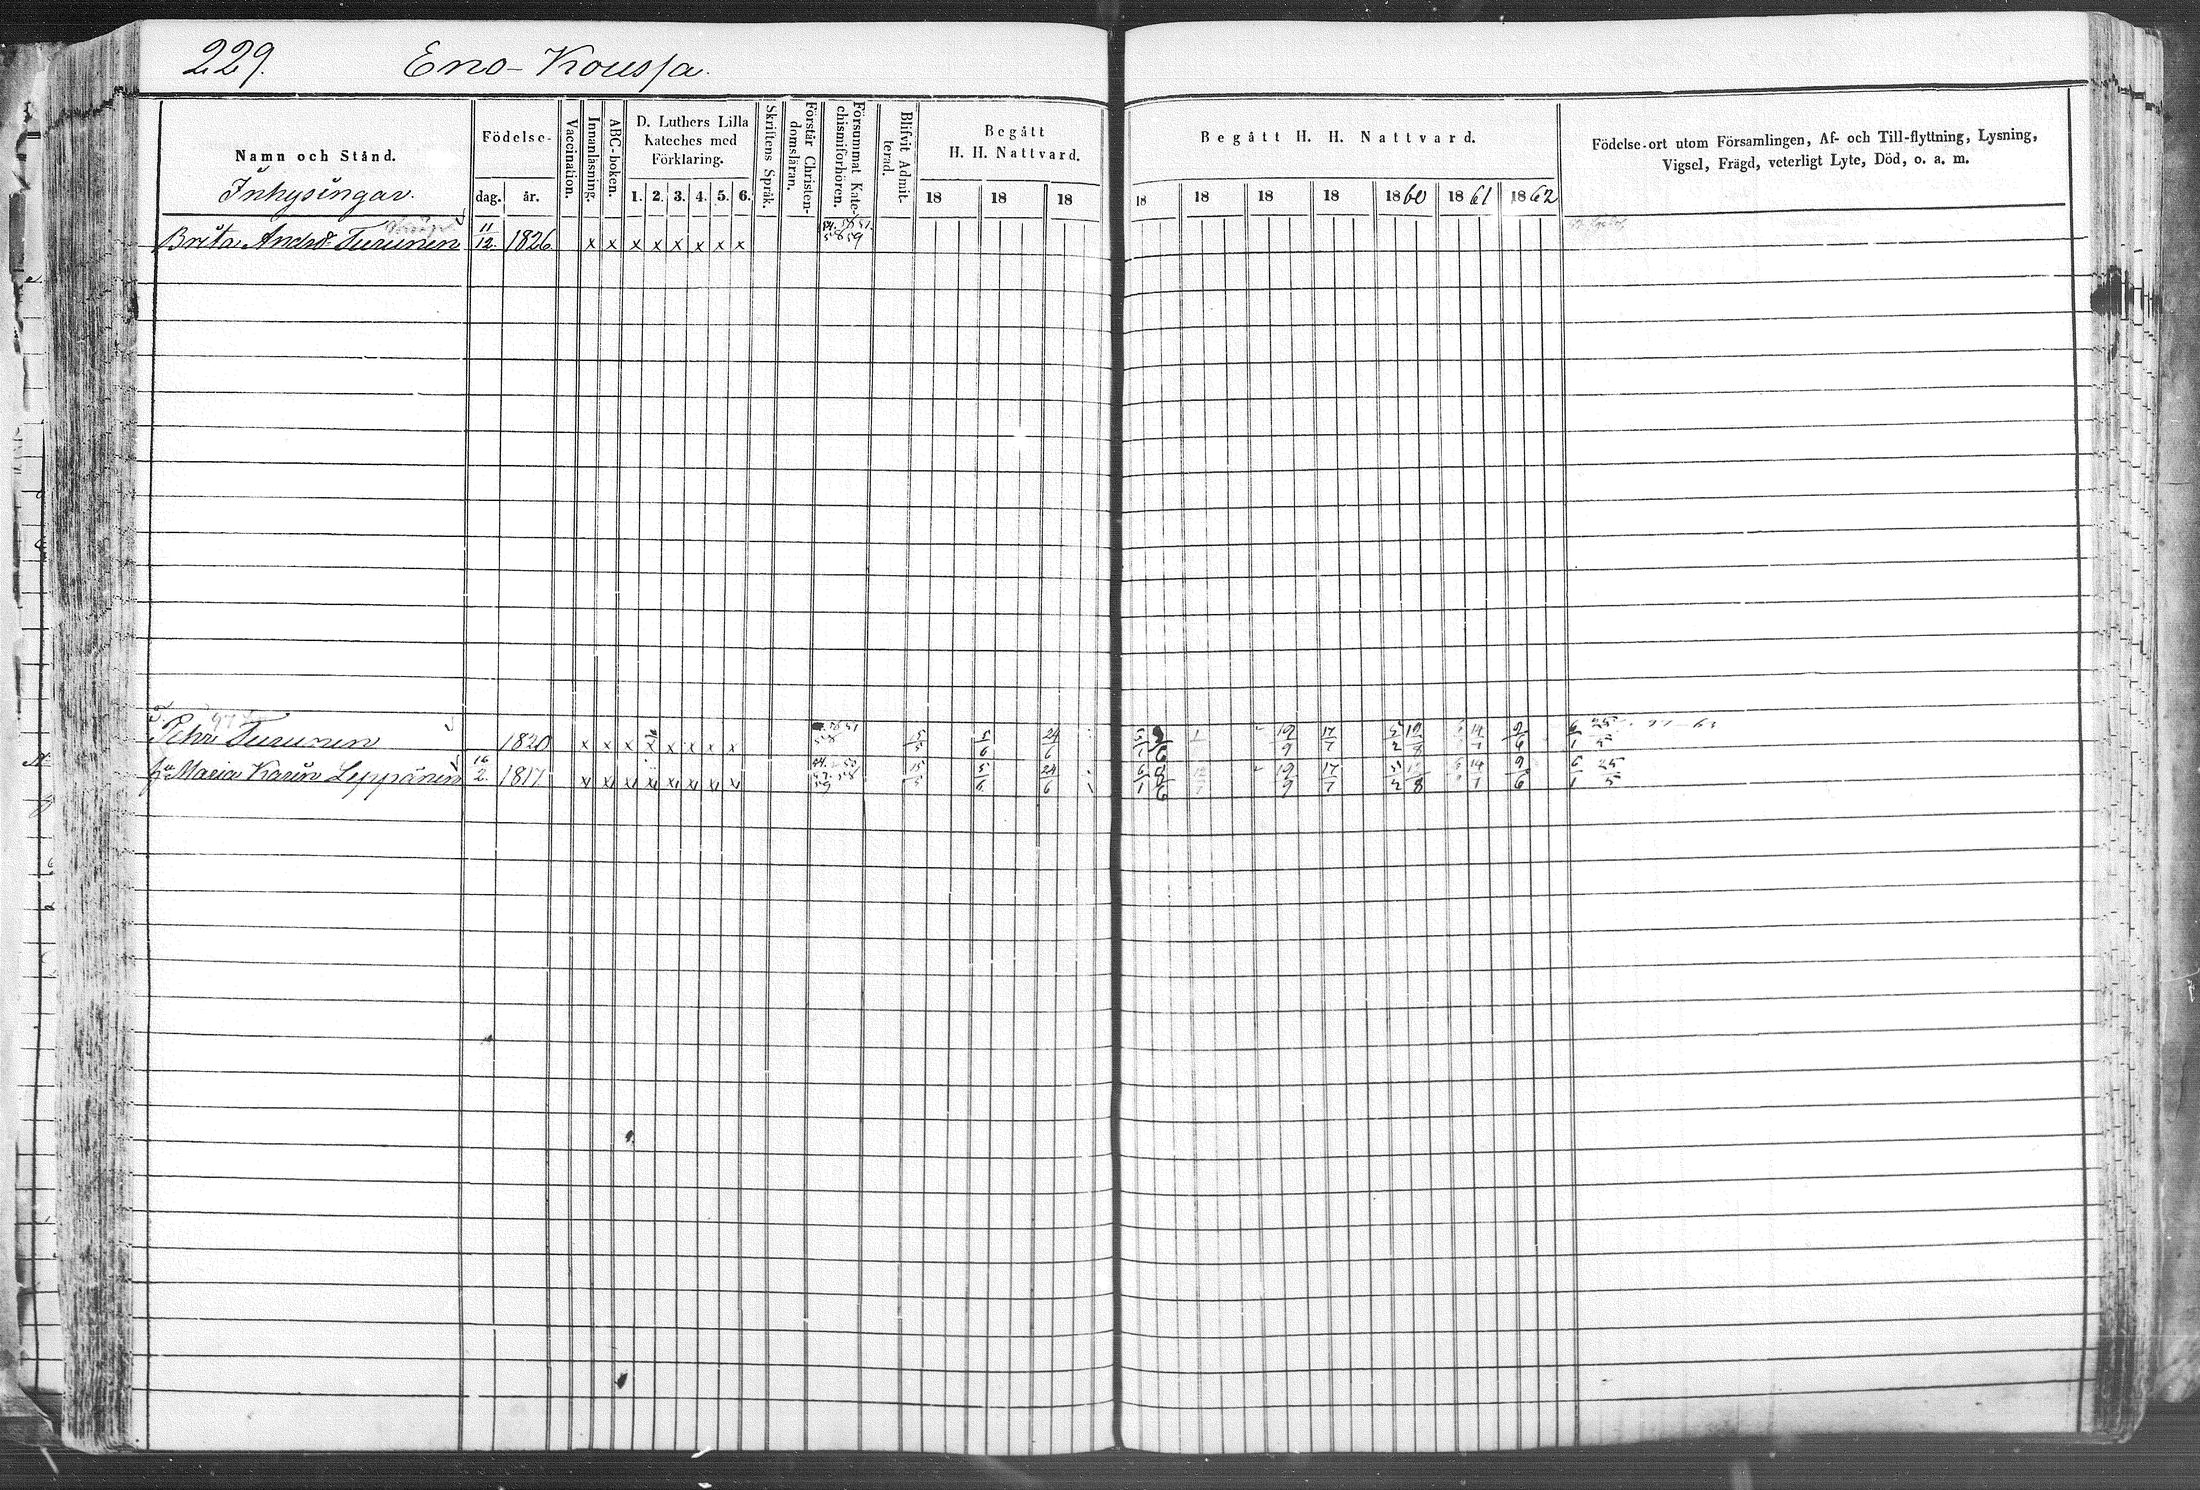 229. Eno-Koussa.
Namn och Stånd.
Inhysingar.
Födelse-
dag. år.
Vaccination.
Innanläsning.
ABC-boken.
D. Luthers Lilla
Kateches med
Förklaring.
1. 2. 3. 4. 5. 6.
Skriftens Språk.
Förstår Christen-
domsläran.
Försummat Kate-
chismiförhören.
Blifvit Admit-
terad.
Begått
H. H. Nattvard.
18 18 18
Begått H. H. Nattvard.
18 18 18 18 1860 1861 1862
Födelse-ort utom Församlingen, Af- och Till-flyttning, Lysning,
Vigsel, Frägd, veterligt Lyte, Död, o. a. m.
Brita Andrsdr Turunen 11/12. 1826 x x x x x x x x
Petter Turunen 1820 x x x x x x x x 15/5 5/6 24/6 19/9 17/7 6/1 25/5
hu Maria Karin Leppänen 16/2. 1817 x x x x x x x x 15/5 5/6 24/6 6/1 19/9 17/7 14/1 9/6 6/1 25/5